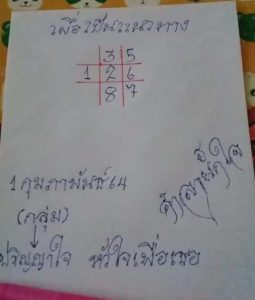 เพื่อเป็นแนวทาง
3 5
1 2 6
8 7
1 กุมภาพันธ์ 64
(กลุ่ม)
ปริญญาใจ หัวใจเพื่อเธอ